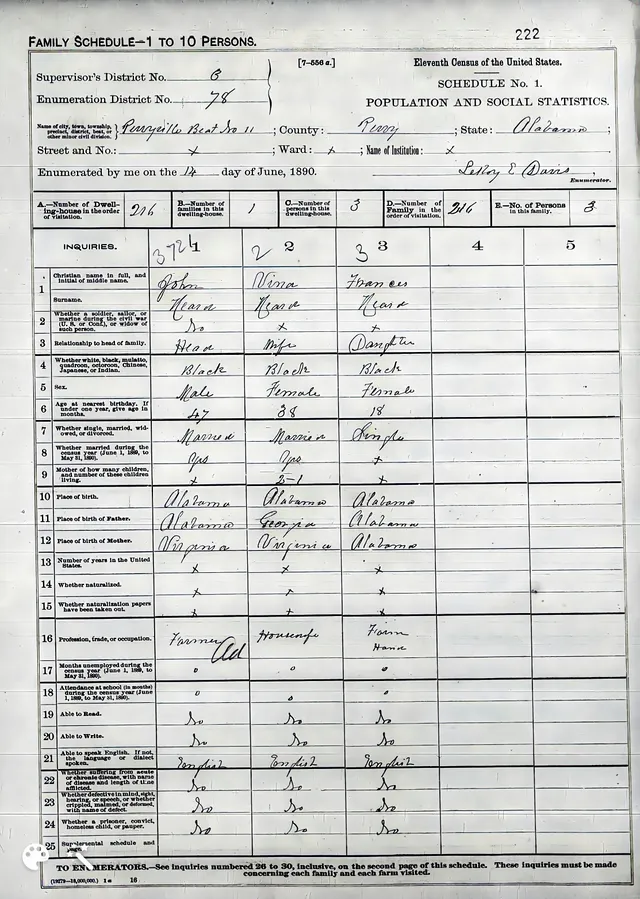 222
FAMILY SCHEDULE—1 TO 10 PERSONS.
[7-556 a.]
Eleventh Census of the United States.
Supervisor's District No. 6
SCHEDULE No. 1.
Enumeration District No. 78
POPULATION AND SOCIAL STATISTICS.
Name of city, town, township, precinct, district, beat, or other minor civil division. Perryville Beat No 11 ; County: Perry ; State: Alabama ;
Street and No.: x ; Ward: x ; Name of Institution: x
Enumerated by me on the 14 day of June, 1890. LeRoy E Davis
Enumerator.
A.—Number of Dwelling-house in the order of visitation. 216 B.—Number of families in this dwelling-house. 1 C.—Number of persons in this dwelling-house. 3 D.—Number of Family in the order of visitation. 216 E.—No. of Persons in this family. 3
INQUIRIES. 1 2 2 3 3 4 5
1 Christian name in full, and initial of middle name. John Vina Frances
Surname. Heard Heard Heard
2 Whether a soldier, sailor, or marine during the civil war (U. S. or Conf.), or widow of such person. No x x
3 Relationship to head of family. Head Wife Daughter
4 Whether white, black, mulatto, quadroon, octoroon, Chinese, Japanese, or Indian. Black Black Black
5 Sex. Male Female Female
6 Age at nearest birthday. If under one year, give age in months. 47 38 18
7 Whether single, married, widowed, or divorced. Married Married Single
8 Whether married during the census year (June 1, 1889, to May 31, 1890). Yes Yes x
9 Mother of how many children, and number of these children living. x 2-1 x
10 Place of birth. Alabama Alabama Alabama
11 Place of birth of Father. Alabama Georgia Alabama
12 Place of birth of Mother. Virginia Virginia Alabama
13 Number of years in the United States. x x x
14 Whether naturalized. x x x
15 Whether naturalization papers have been taken out. x x x
16 Profession, trade, or occupation. Farmer Housewife Farm Hand
17 Months unemployed during the census year (June 1, 1889, to May 31, 1890). 0 0 0
18 Attendance at school (in months) during the census year (June 1, 1889, to May 31, 1890). 0 0
19 Able to Read. No No No
20 Able to Write. No No No
21 Able to speak English. If not, the language or dialect spoken. English English English
22 Whether suffering from acute or chronic disease, with name of disease and length of time afflicted. No No No
23 Whether defective in mind, sight, hearing, or speech, or whether crippled, maimed, or deformed, with name of defect. No No No
24 Whether a prisoner, convict, homeless child, or pauper. No No No
25 Supplemental schedule and page.
TO ENUMERATORS.—See inquiries numbered 26 to 30, inclusive, on the second page of this schedule. These inquiries must be made
concerning each family and each farm visited.